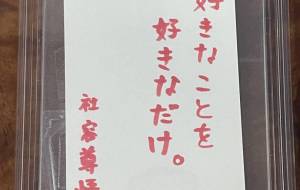 好きなことを
好きなだけ。
社容尊